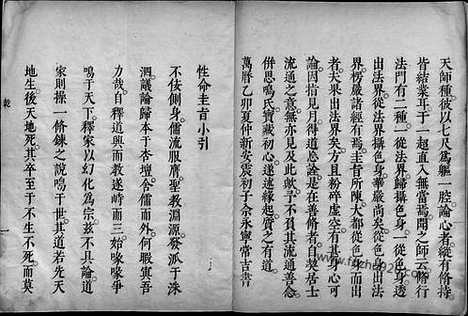 天師種彼以七尺為軀一腔論心者縱有修持
皆結業耳于一超直入無當焉聞之師云修行
法門有二種一從法界歸攝色身一從色身透
出法界從法界攝色身華嚴尚矣從色身出法
界楞嚴諸經有焉圭旨所陳大都從色身而出
者夫果出法界方
粉碎虛空有
身心可
論因指見月得道忘
是在善脩者自契居士
流通之意無亦見及此歟予不
其有流通善念
併思鳴氏寶藏初心遂述緣起質之有道
萬曆乙卯夏仲新安震初子余永寧常吉書
性命圭旨小引
不佞側身儒流服膺聖教淵源發派于洙
泗議論歸本于杏壇舍儒而外何暇寘吾
力哉自釋道與而教遂峙而三始喙喙爭
鳴于天下釋家以幻化為宗茲不具論道
家則操一脩鍊之說鳴于世其道若先天
地生後天地死其卒至于不生不死而莫